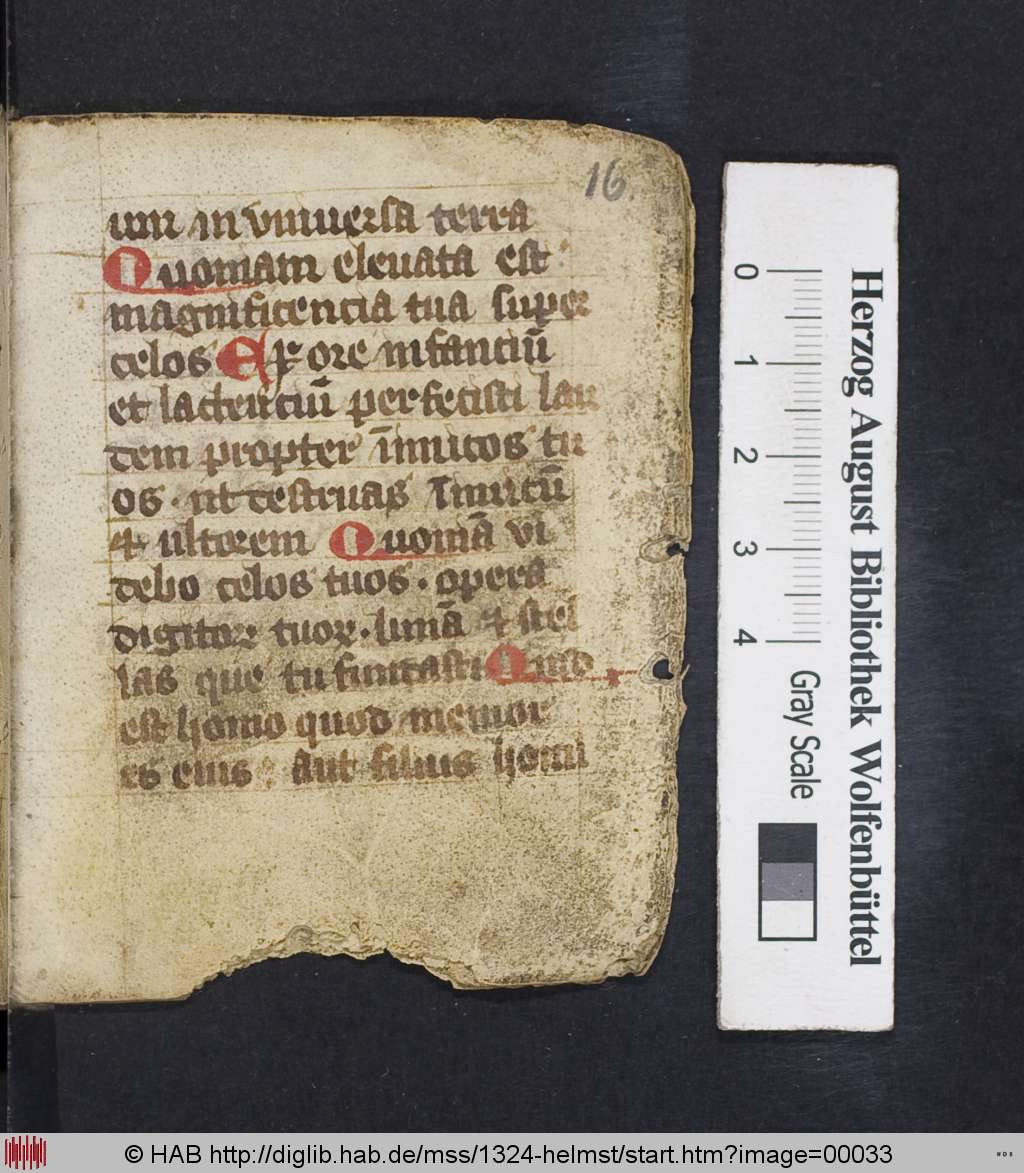 16.
um in vniuersa terra
Quoniam eleuata est
magnificencia tua super
celos Ex ore infanciū
et lactenciū perfecisti lau
dem propter īimicos tu
os · ut destruas īimicū
et ultorem Quoniā vi
debo celos tuos · opera
digitoꝝ tuoꝝ · lunā et stel
las que tu fundasti Quid
est homo quod memor
es eius : aut filius homi
Herzog August Bibliothek Wolfenbüttel
0 1 2 3 4 Gray Scale
© HAB http://diglib.hab.de/mss/1324-helmst/start.htm?image=00033